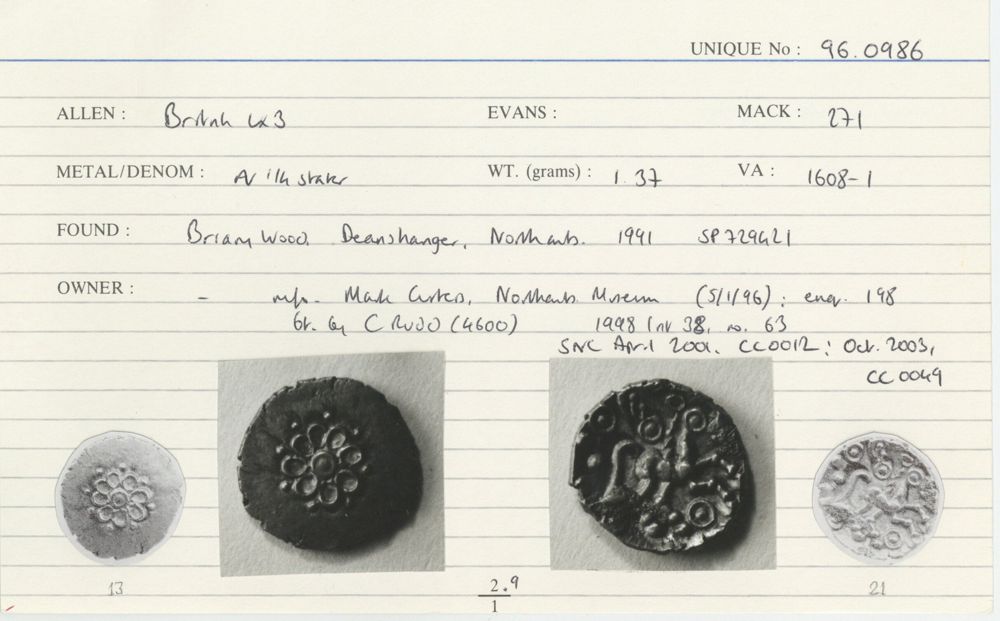 UNIQUE No : 96.0986
ALLEN : British Lx3 EVANS : MACK : 271
METAL/DENOM : stater WT. (grams) : 1.37 VA : 1608-1
FOUND : Wood, Deanshanger, Northants. 1991 SP729421
OWNER : - Mark Curteis, Northants Museum (5/1/96) ; enq. 198
bt. by C RUDD (4600) 1998 list 38, no. 63
SNC April 2001, CC0012 ; Oct. 2003,
CC0049
13 2.9 21
1